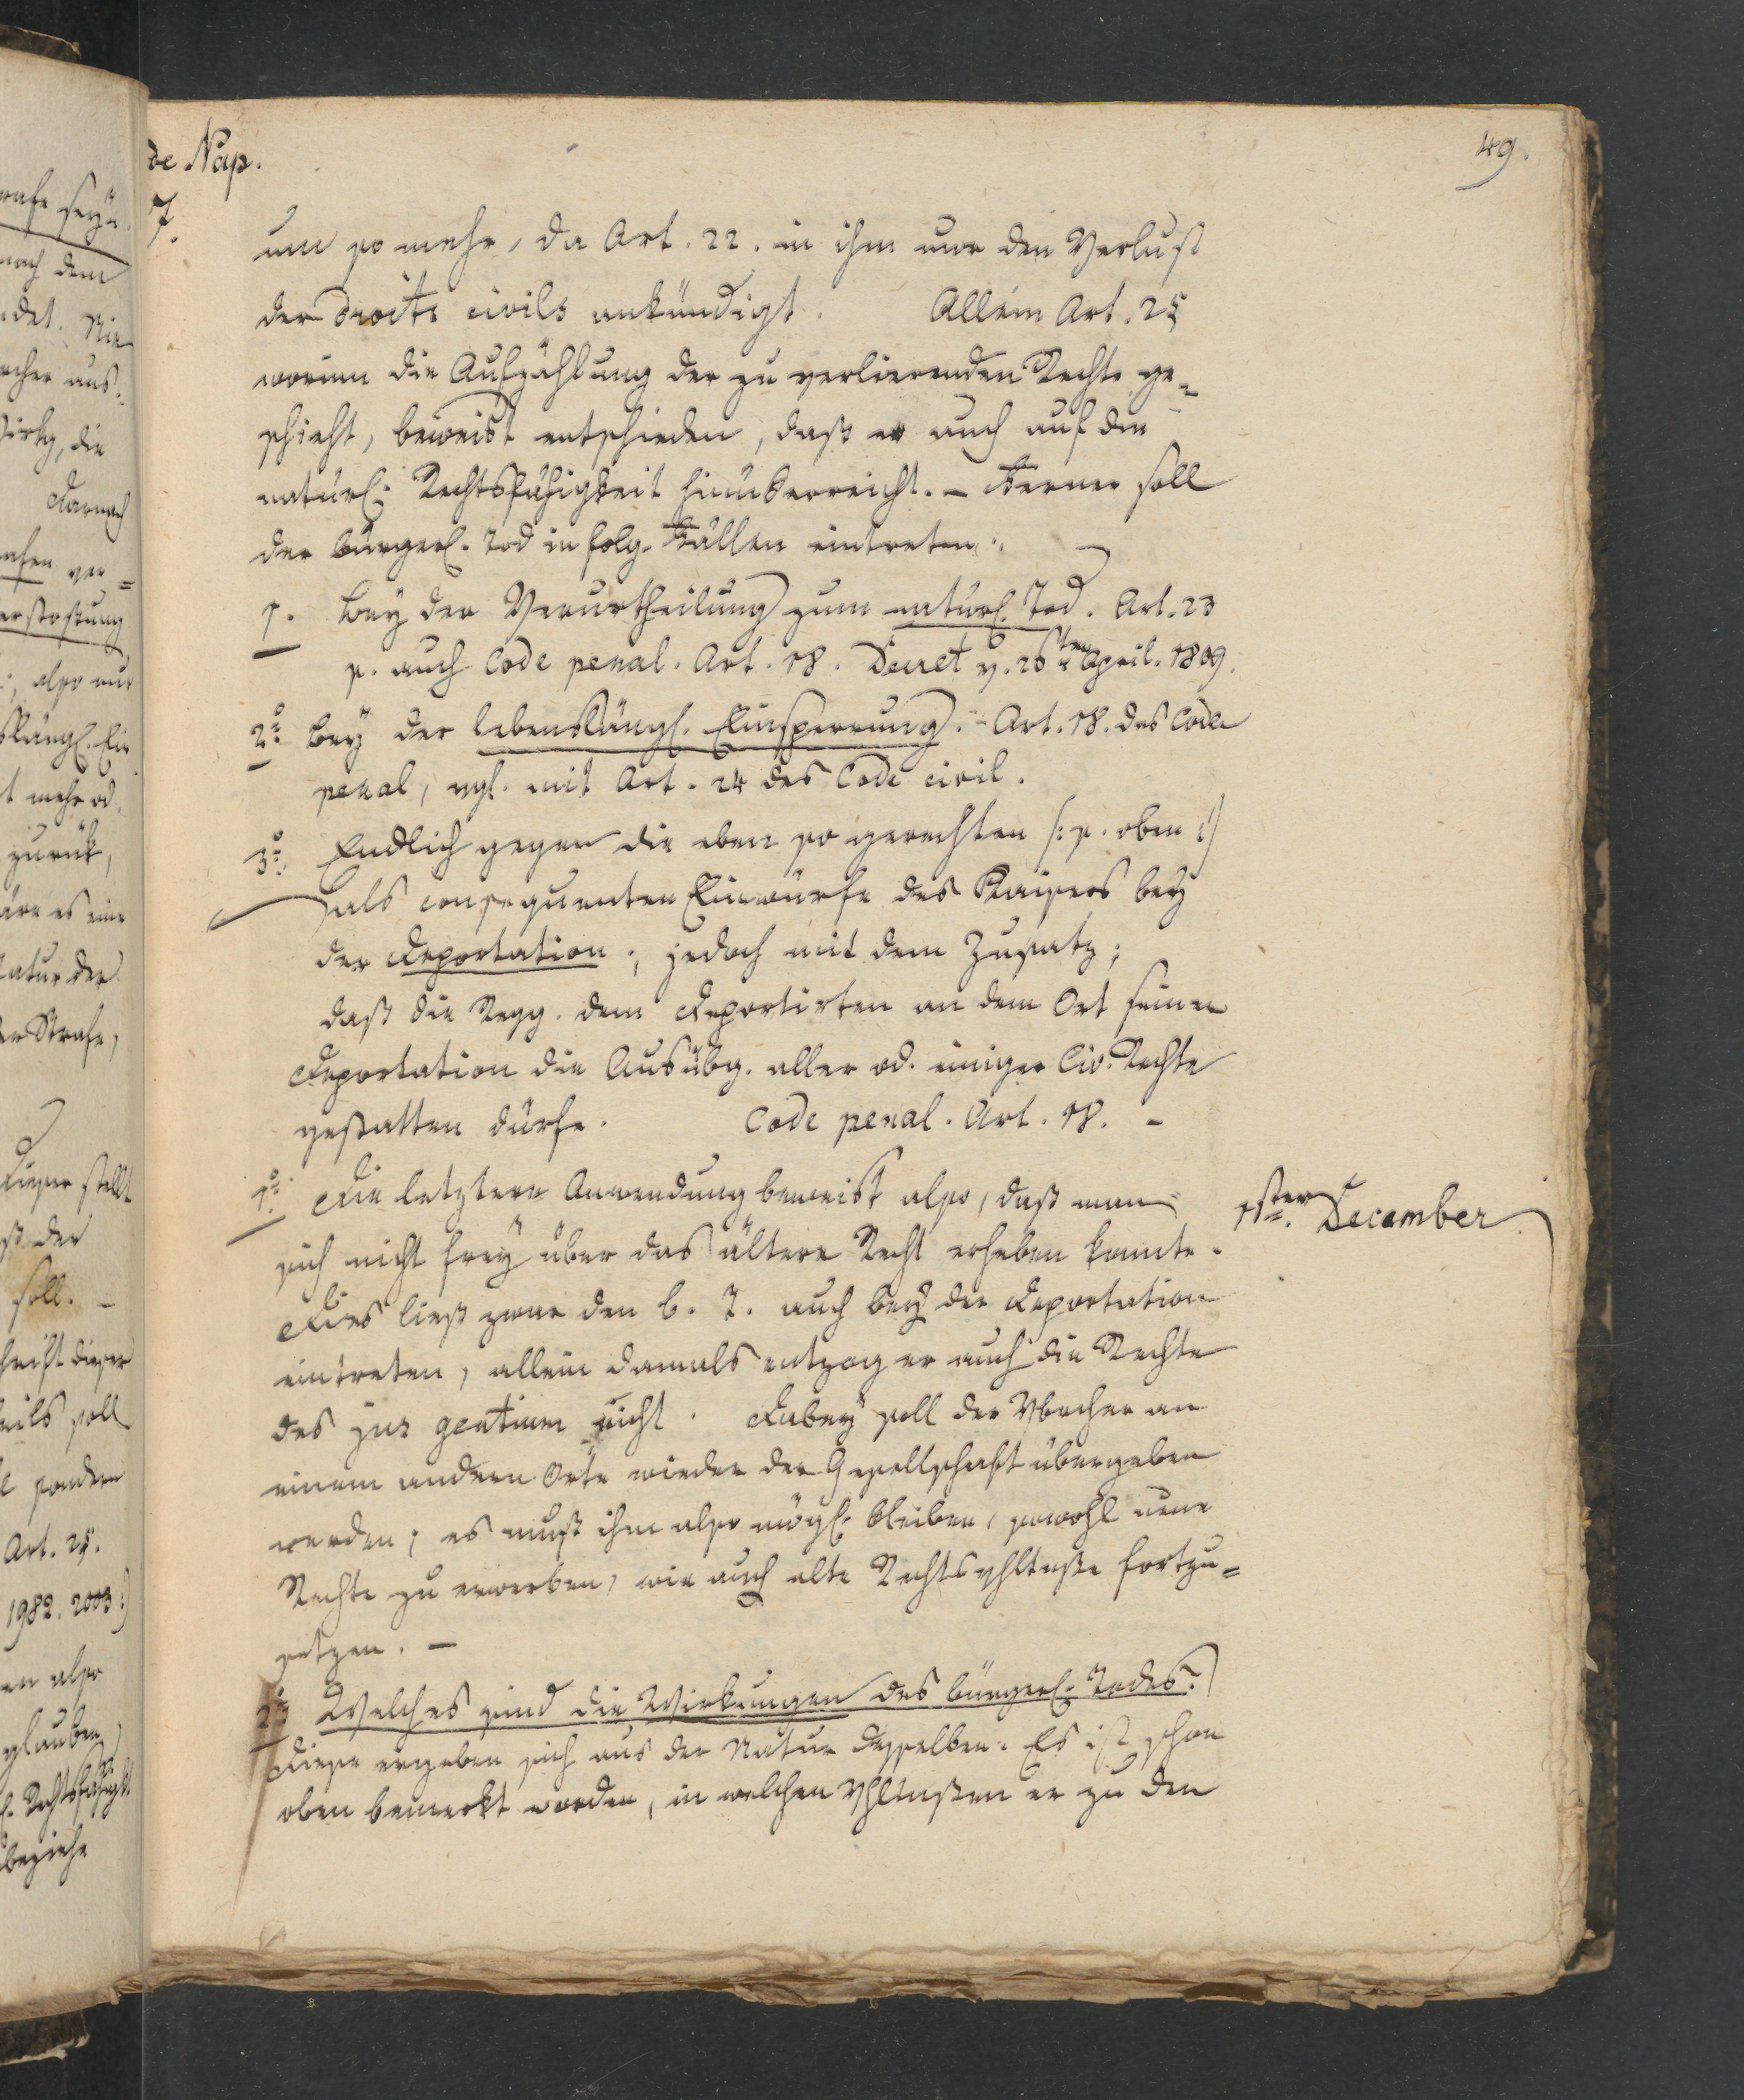 de Nap.
49.
7.
um so mehr, da Art. 22. in ihm nur den Verlust
der droits civils ankündigt. Allein Art. 25
worinn die Aufzählung der zu verlierenden Rechte ge-
schieht, beweist entschieden, daß er auch auf die
natürl. Rechtsfähigkeit hinüberreicht. – Ferner soll
der bürgerl. Tod in folg. Fällen eintreten.
1. Bey der Verurtheilung zum natürl. Tod. Art. 23
s. auch Code penal. Art. 18. Decret v. 26ten April. 1809.
2o Bey der lebenslängl. Einsperrung. – Art. 18. des Code
penal, vgl. mit Art. 24 des Code civil.
3o. Endlich gegen die eben so gerechten (: s. oben :)
als consequenten Einwürfe des Kaisers bey
der Deportation; jedoch mit dem Zusatz;
daß die Regg. dem Deportirten an dem Ort seiner
Deportation die Ausübg. aller od. einiger Civ. Rechte
gestatten dürfe. Code penal. Art. 18. –
1o. Die letztere Anwendung beweist also, daß man
11ter. December
sich nicht frey über das ältere Recht erheben konnte.
Dies ließ zwar den b. T. auch bey der Deportation
eintreten, allein damals entzog er auch die Rechte
des jus gentium nicht. Dabey soll der Vbrecher an
einem andern Orte wieder der Gesellschaft übergeben
werden; es muß ihm also mögl. bleiben, sowohl neue
Rechte zu erwerben, wie auch alte Rechtsvhltnße fortzu-
setzen. –
2o Welches sind die Wirkungen des bürgerl. Todes.
Diese ergeben sich aus der Natur desselben. Es ist schon
oben bemerkt worden, in welchen Vhltnßen er zu den